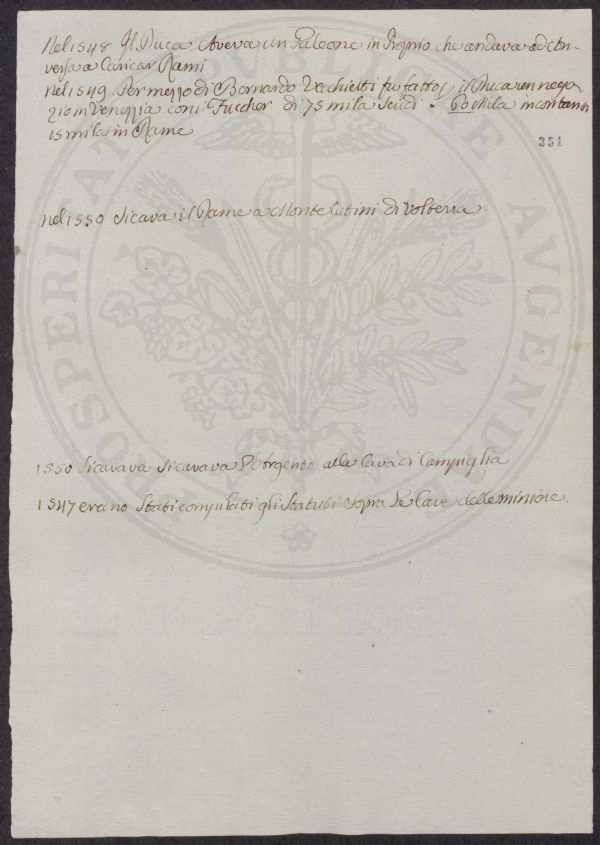 Nel 1548 Il Duca Aveva un Galeone in Proprio che andava ad An-
versa a Caricar Rami
nel 1549 Per mezzo di Bernardo Vecchietti fu fatto il Duca un nego
zio in Venezzia con i Fuccher di 75 mila Scudi. 60 Mila in contanti
15 mila in Rame
351
nel 1550 Si cava il Rame a Monte Catini di Volterra
1550 Si cavava si cavava l'Argento alla Cava di Campiglia
1547 erano Stati compilati gli Statuti Sopra Le Cave delle miniere.
PUBLICAE
PROSPERITATI
AUGENDAE